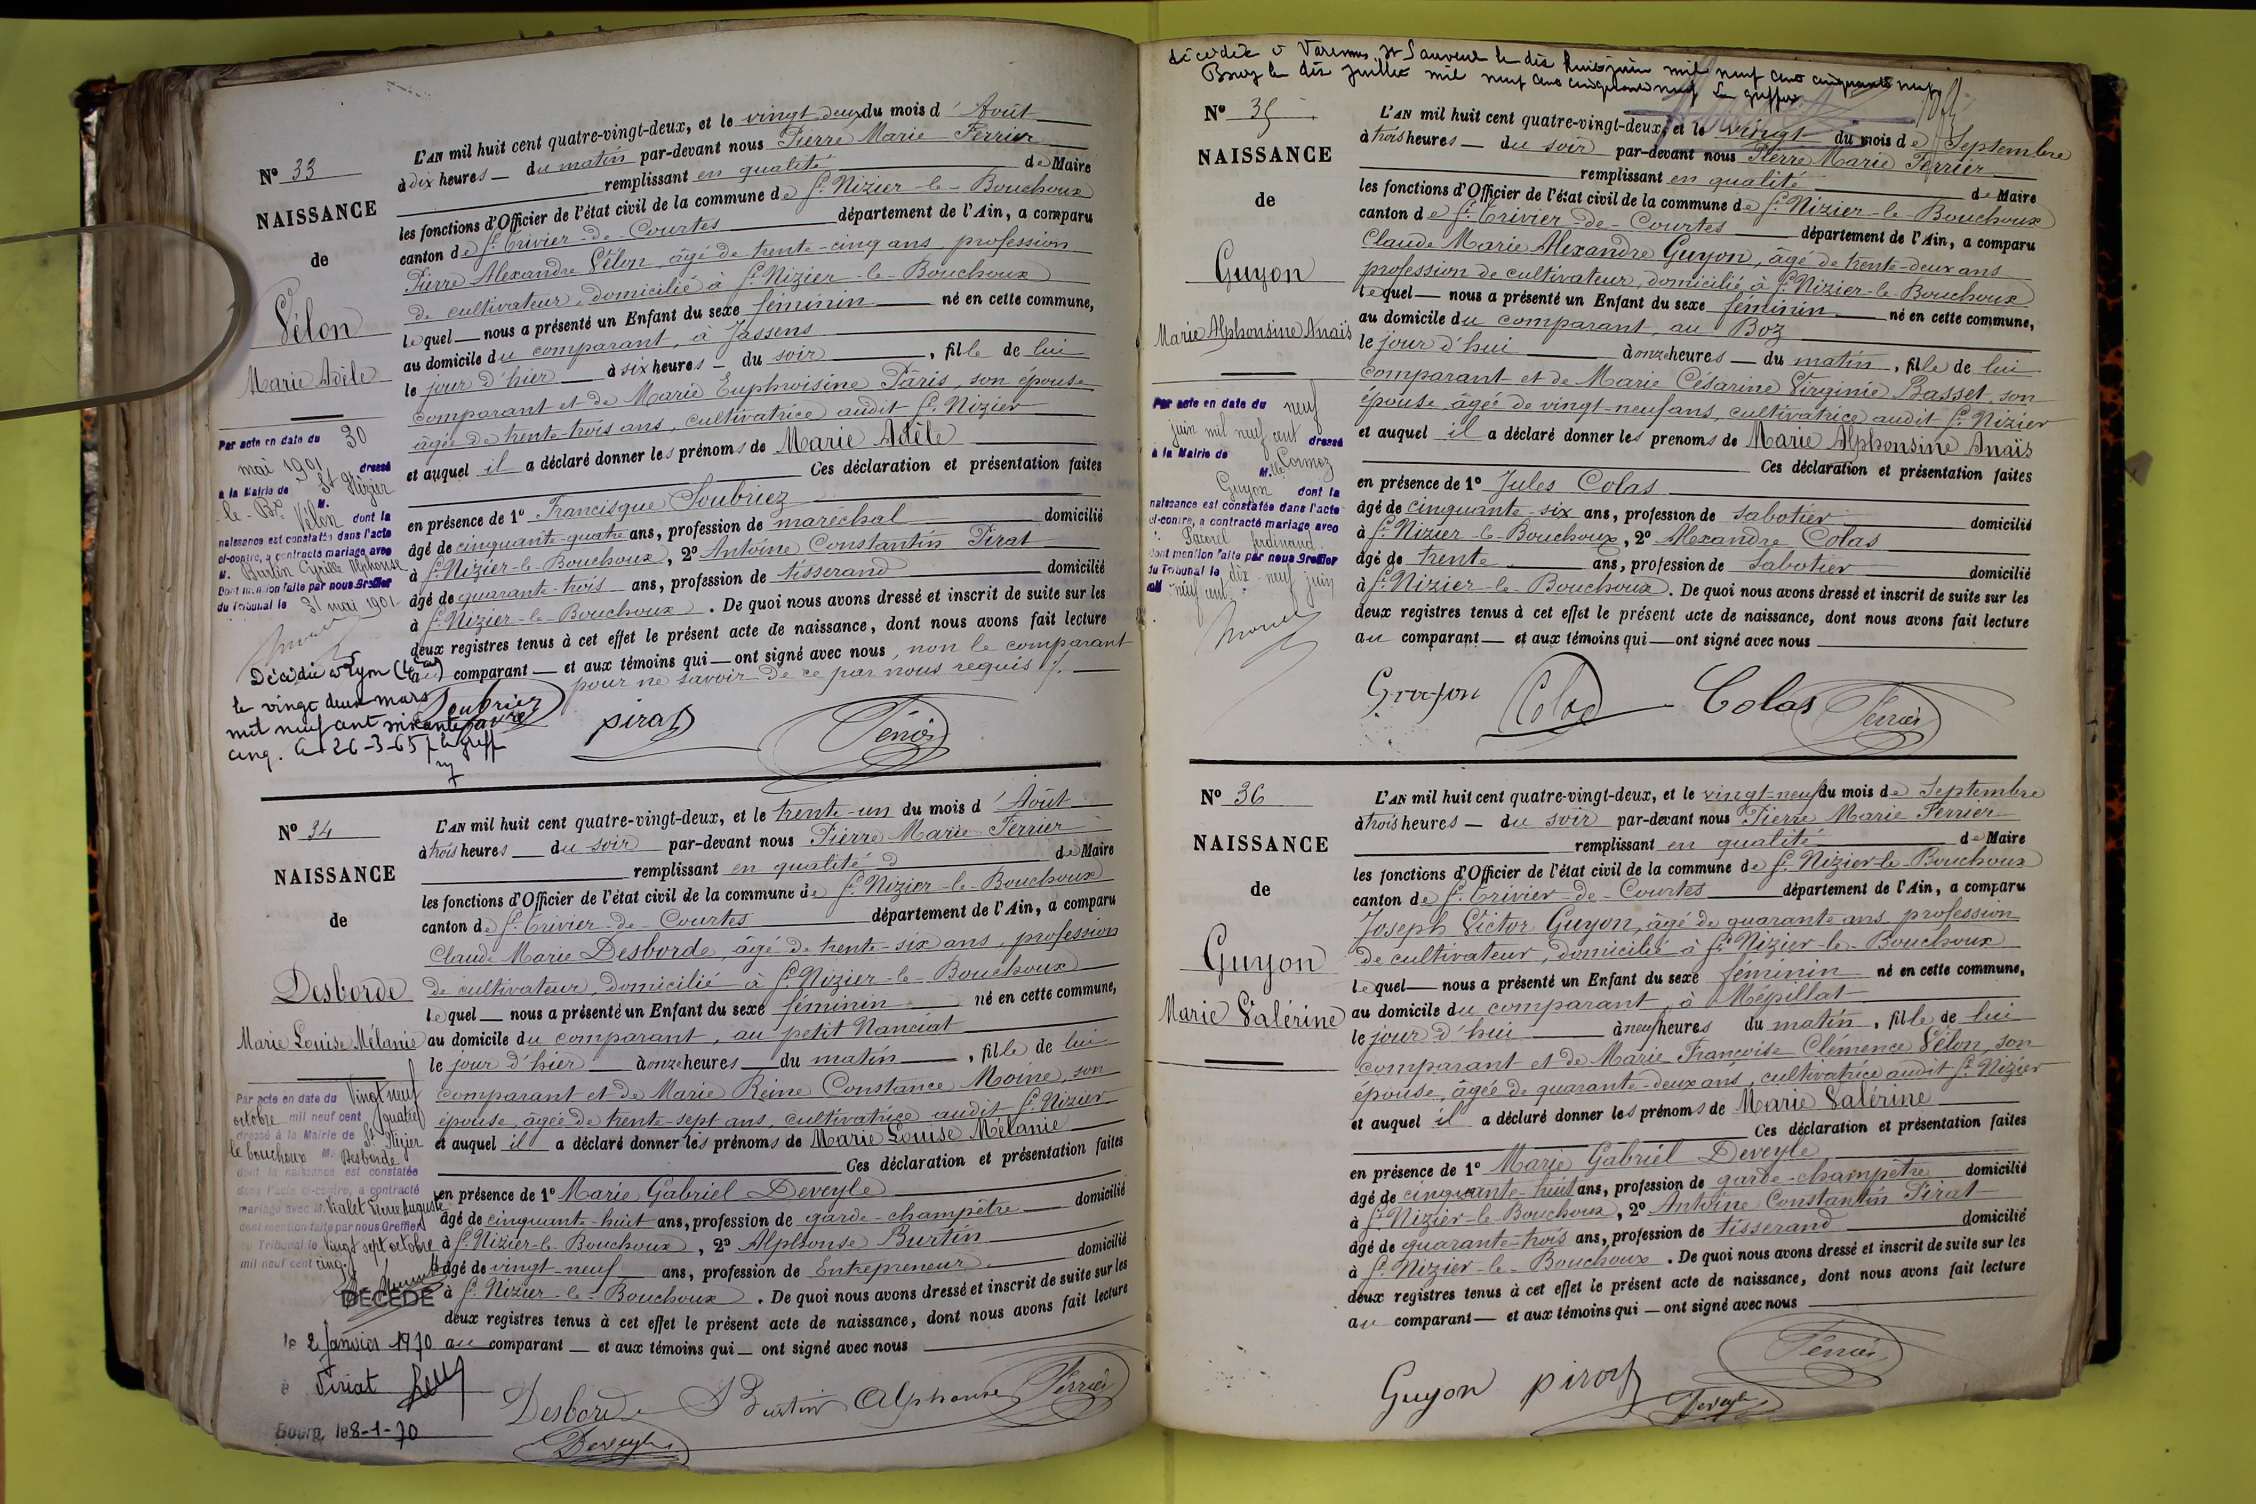 N° 33
NAISSANCE
de
Vélon
Marie Adèle
L'AN mil huit cent quatre-vingt-deux, et le vingt deux du mois d'Août
à dix heures — du matin par-devant nous Pierre Marie Ferrier
remplissant en qualité de Maire
les fonctions d'Officier de l'état civil de la commune de St Nizier-le-Bouchoux
canton de St Trivier-de-Courtes département de l'Ain, a comparu
Pierre Alexandre Vélon, âgé de trente-cinq ans, profession
de cultivateur, domicilié à St Nizier-le-Bouchoux
lequel — nous a présenté un Enfant du sexe féminin né en cette commune,
au domicile du comparant, à Jassens
le jour d'hier à six heures — du soir, fille de lui
comparant et de Marie Euphroisine Pâris, son épouse
âgée de trente-trois ans, cultivatrice audit St Nizier
et auquel il a déclaré donner les prénoms de Marie Adèle
Ces déclaration et présentation faites
en présence de 1° Francisque Soubriez
âgé de cinquante-quatre ans, profession de maréchal domicilié
à St Nizier-le-Bouchoux, 2° Antoine Constantin Pirat
âgé de quarante-trois ans, profession de tisserand domicilié
à St Nizier-le-Bouchoux. De quoi nous avons dressé et inscrit de suite sur les
deux registres tenus à cet effet le présent acte de naissance, dont nous avons fait lecture
au comparant — et aux témoins qui — ont signé avec nous, non le comparant
pour ne savoir de ce par nous requis
Soubriez pirat Ferrier
Par acte en date du 30
mai 1901 dressé
à la Mairie de St Nizier
-le-Bx M.
Vélon dont la
naissance est constatée dans l'acte
ci-contre, a contracté mariage avec
M. Burtin Cyrille Alphonse
Dont mention faite par nous Greffier
du Tribunal le 31 mai 1901
Décédée à Lyon
le vingt deux mars
mil neuf cent soixante
cinq. Le 26-3-65 le greff
N° 34
NAISSANCE
de
Desborde
Marie Louise Mélanie
L'AN mil huit cent quatre-vingt-deux, et le trente-un du mois d'Août
à trois heures — du soir par-devant nous Pierre Marie Ferrier
remplissant en qualité de Maire
les fonctions d'Officier de l'état civil de la commune de St Nizier-le-Bouchoux
canton de St Trivier-de-Courtes département de l'Ain, a comparu
Claude Marie Desborde, âgé de trente-six ans, profession
de cultivateur, domicilié à St Nizier-le-Bouchoux
lequel — nous a présenté un Enfant du sexe féminin né en cette commune,
au domicile du comparant, au petit Nanciat
le jour d'hier à onze heures — du matin, fille de lui
comparant et de Marie Reine Constance Moine, son
épouse, âgée de trente-sept ans, cultivatrice audit St Nizier
et auquel il a déclaré donner les prénoms de Marie Louise Mélanie
Ces déclaration et présentation faites
en présence de 1° Marie Gabriel Deveyle
âgé de cinquante-huit ans, profession de garde-champêtre domicilié
à St Nizier-le-Bouchoux, 2° Alphonse Burtin
âgé de vingt-neuf ans, profession de Entrepreneur domicilié
à St Nizier-le-Bouchoux. De quoi nous avons dressé et inscrit de suite sur les
deux registres tenus à cet effet le présent acte de naissance, dont nous avons fait lecture
au comparant — et aux témoins qui — ont signé avec nous
Desborde Burtin Alphonse Ferrier
Deveyle
Par acte en date du Vingt neuf
octobre mil neuf cent quatre
dressé à la Mairie de St Nizier
le bouchoux M. Desborde
dont la naissance est constatée
dans l'acte ci-contre, a contracté
mariage avec M. Vialet Pierre Auguste
dont mention faite par nous Greffier
du Tribunal le Vingt sept octobre
mil neuf cent cinq.
DÉCÉDÉ
le 2 Janvier 1970
à Viriat
Bourg, le 8-1-70
décédée à Varennes St Sauveur le dix huit juin mil neuf cent cinquante neuf
Bourg le dix juillet mil neuf cent cinquante neuf Le greffier
N° 35
NAISSANCE
de
Guyon
Marie Alphonsine Anaïs
L'AN mil huit cent quatre-vingt-deux, et le vingt du mois de Septembre
à trois heures — du soir par-devant nous Pierre Marie Ferrier
remplissant en qualité de Maire
les fonctions d'Officier de l'état civil de la commune de St Nizier-le-Bouchoux
canton de St Trivier-de-Courtes département de l'Ain, a comparu
Claude Marie Alexandre Guyon, âgé de trente-deux ans
profession de cultivateur, domicilié à St Nizier-le-Bouchoux
lequel — nous a présenté un Enfant du sexe féminin né en cette commune,
au domicile du comparant, au Boz
le jour d'hui à onze heures — du matin, fille de lui
comparant et de Marie Césarine Virginie Basset, son
épouse, âgée de vingt-neuf ans, cultivatrice audit St Nizier
et auquel il a déclaré donner les prenoms de Marie Alphonsine Anaïs
Ces déclaration et présentation faites
en présence de 1° Jules Colas
âgé de cinquante-six ans, profession de sabotier domicilié
à St Nizier-le-Bouchoux, 2° Alexandre Colas
âgé de trente ans, profession de sabotier domicilié
à St Nizier-le-Bouchoux. De quoi nous avons dressé et inscrit de suite sur les
deux registres tenus à cet effet le présent acte de naissance, dont nous avons fait lecture
au comparant — et aux témoins qui — ont signé avec nous
Guyon Colas Colas Ferrier
Par acte en date du neuf
juin mil neuf cent dressé
à la Mairie de Cormoz
Mlle
Guyon dont la
naissance est constatée dans l'acte
ci-contre, a contracté mariage avec
ferdinand
dont mention faite par nous Greffier
du Tribunal le dix-neuf juin
mil neuf cent
N° 36
NAISSANCE
de
Guyon
Marie Valérine
L'AN mil huit cent quatre-vingt-deux, et le vingt-neuf du mois de Septembre
à trois heures — du soir par-devant nous Pierre Marie Ferrier
remplissant en qualité de Maire
les fonctions d'Officier de l'état civil de la commune de St Nizier-le-Bouchoux
canton de St Trivier-de-Courtes département de l'Ain, a comparu
Joseph Victor Guyon, âgé de quarante ans, profession
de cultivateur, domicilié à St Nizier-le-Bouchoux
lequel — nous a présenté un Enfant du sexe féminin né en cette commune,
au domicile du comparant, à Mépillat
le jour d'hui à neuf heures du matin, fille de lui
comparant et de Marie Françoise Clémence Vélon, son
épouse, âgée de quarante-deux ans, cultivatrice audit St Nizier
et auquel il a déclaré donner les prénoms de Marie Valérine
Ces déclaration et présentation faites
en présence de 1° Marie Gabriel Deveyle
âgé de cinquante-huit ans, profession de garde-champêtre domicilié
à St Nizier-le-Bouchoux, 2° Antoine Constantin Pirat
âgé de quarante-trois ans, profession de tisserand domicilié
à St Nizier-le-Bouchoux. De quoi nous avons dressé et inscrit de suite sur les
deux registres tenus à cet effet le présent acte de naissance, dont nous avons fait lecture
au comparant — et aux témoins qui — ont signé avec nous
Guyon pirat Ferrier
Deveyle